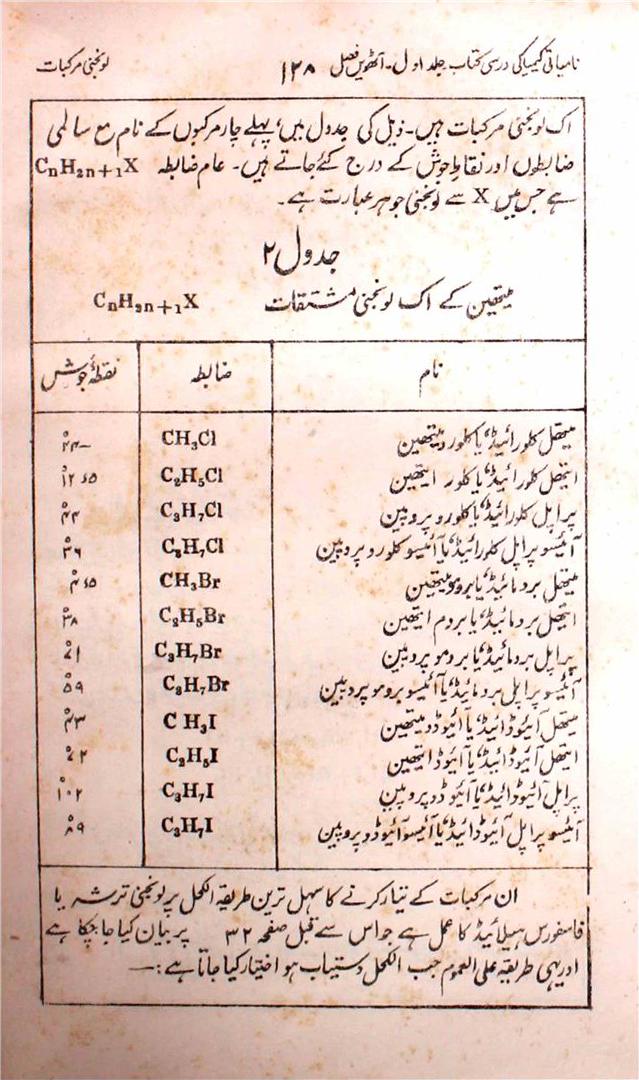 نامیاتی کیمیا کی درسی کتاب جلد اول۔ آٹھویں فصل ۱۲۸ لونجنی مرکبات
اک لونجنی مرکبات ہیں۔ ذیل کی جدول میں، پہلے چار مرکبوں کے نام مع سالمی
ضابطوں اور نقاطِ جوش کے درج کئے جاتے ہیں۔ عام ضابطہ CnH2n+1X
ہے جس میں X سے لونجنی جوہر عبارت ہے۔
جدول ۲
میتھین کے اک لونجنی مشتقات CnH2n+1X
نام ضابطہ نقطۂ جوش
میتھل کلورائیڈ، یا کلورو میتھین CH3Cl ‎–۲۴°
ایتھل کلورائیڈ، یا کلورو ایتھین C2H5Cl ۱۲٫۵°
پراپل کلورائیڈ، یا کلورو پروپین C3H7Cl ۴۴°
آئیسو پراپل کلورائیڈ، یا آئیسو کلورو پروپین C3H7Cl ۳۶°
میتھل برومائیڈ، یا برومو میتھین CH3Br ۴٫۵°
ایتھل برومائیڈ، یا بروم ایتھین C2H5Br ۳۸°
پراپل برومائیڈ، یا برومو پروپین C3H7Br ۷۱°
آئیسو پراپل برومائیڈ، یا آئیسو برومو پروپین C3H7Br ۵۹°
میتھل آیوڈائیڈ، یا آیوڈو میتھین CH3I ۴۳°
ایتھل آیوڈائیڈ، یا آیوڈ ایتھین C2H5I ۷۲°
پراپل آئیوڈائیڈ، یا آئیوڈو پروپین C3H7I ۱۰۲°
آئیسو پراپل آئیوڈائیڈ، یا آئیسو آئیوڈو پروپین C3H7I ۸۹°
ان مرکبات کے تیار کرنے کا سہل ترین طریقہ الکحل پر لونجنی ترشہ یا
فاسفورس ہیلائیڈ کا عمل ہے جو اس سے قبل صفحہ ۳۲ پر بیان کیا جا چکا ہے
اور یہی طریقہ علی العموم جب الکحل دستیاب ہو اختیار کیا جاتا ہے :—